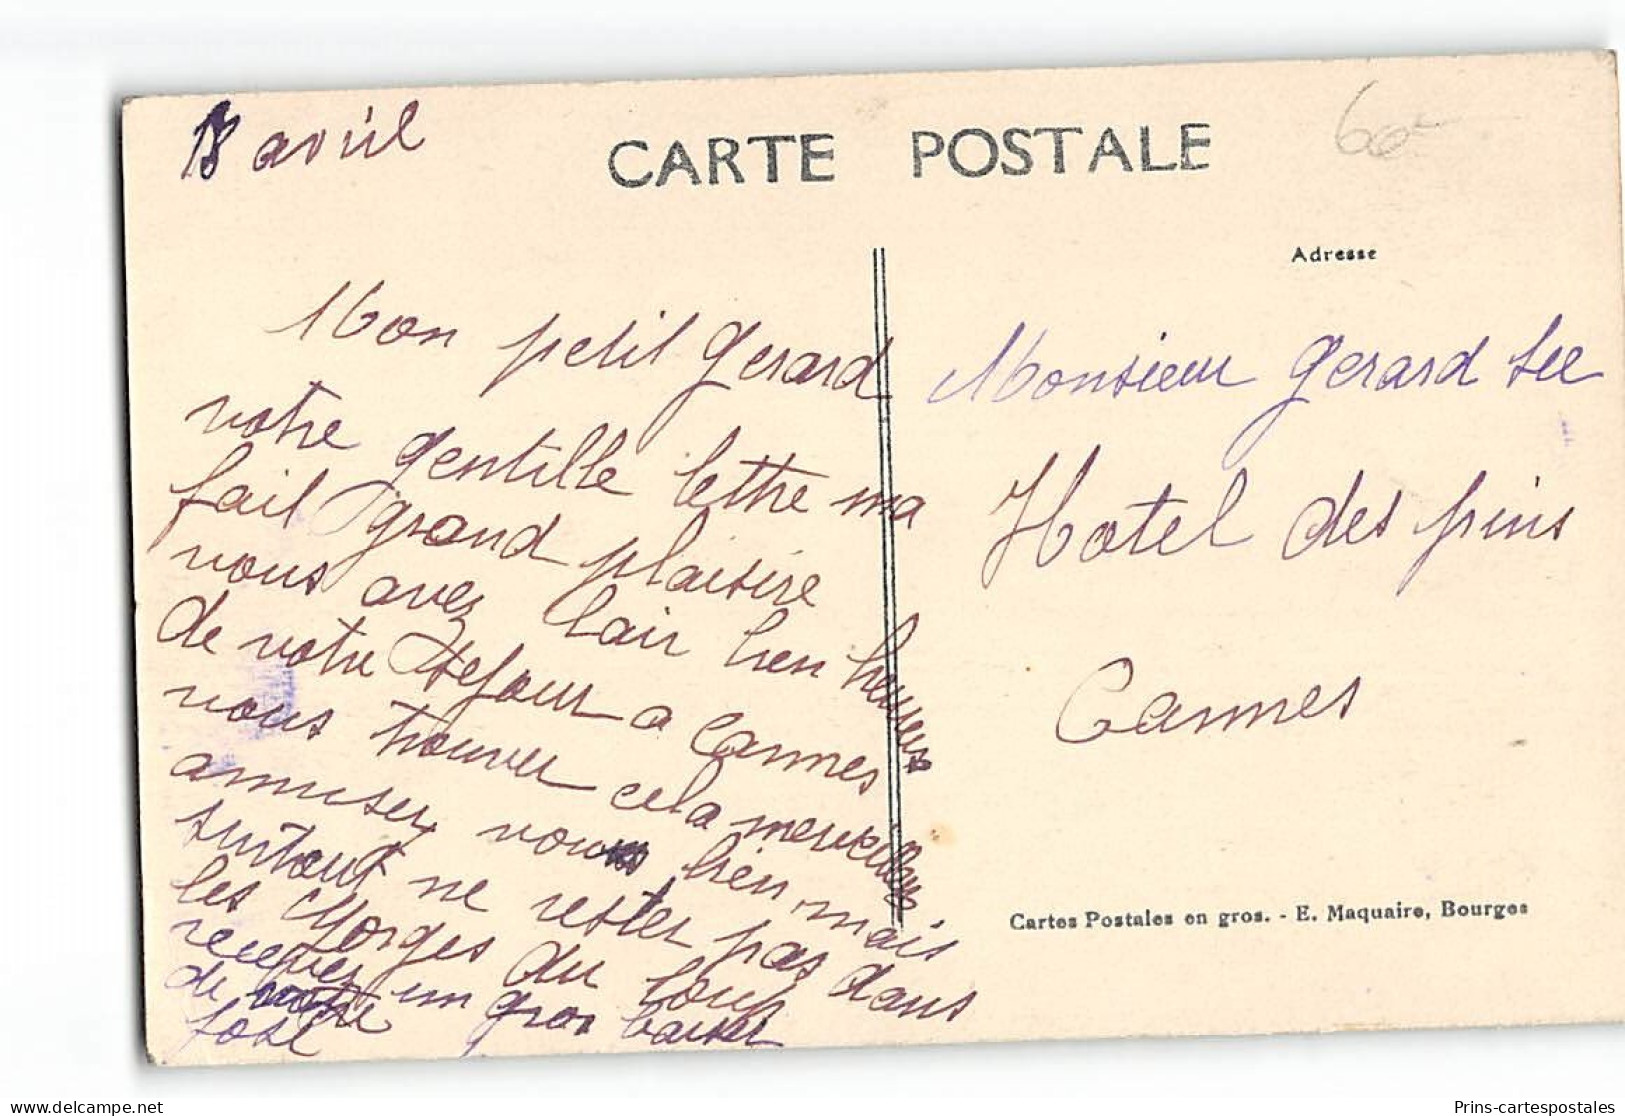 18 avril
CARTE POSTALE
60
Mon petit gerard
votre gentille lettre ma
fait grand plaisire
vous avez lair bien heureus
de votre sejour a Cannes
vous trouver cela merveilleus
amusez vous bien mais
surtout ne rester pas dans
les gorges du loup
recevez un gros baiser
de votre
José
Adresse
Monsieur gerard See
Hotel des pins
Cannes
Cartes Postales en gros. - E. Maquaire, Bourges
Prins-cartespostales